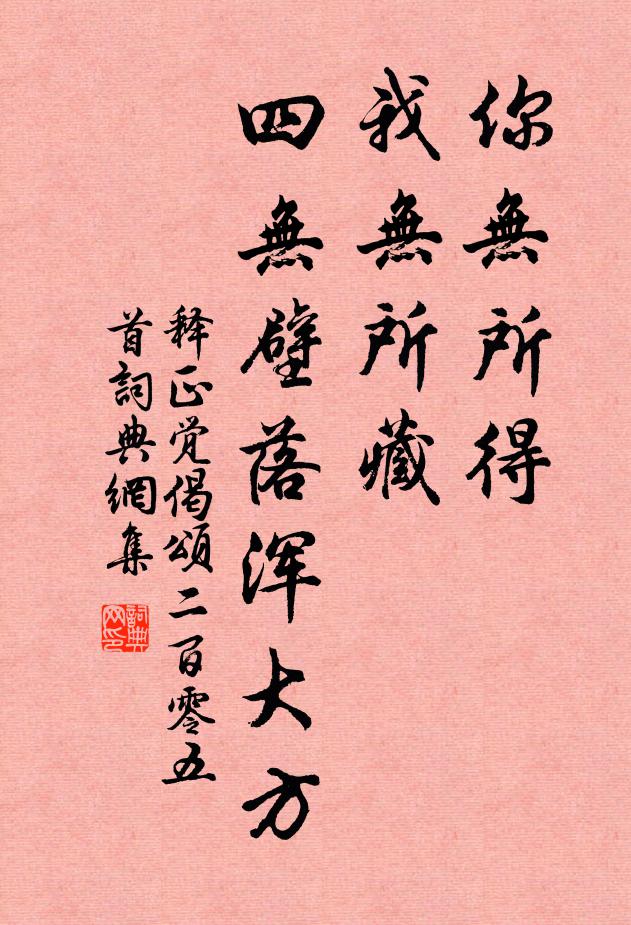 你無所得
我無所藏
四無壁落浑大方
释正觉偈頌二百零五
首詞典網集
詞典
网印